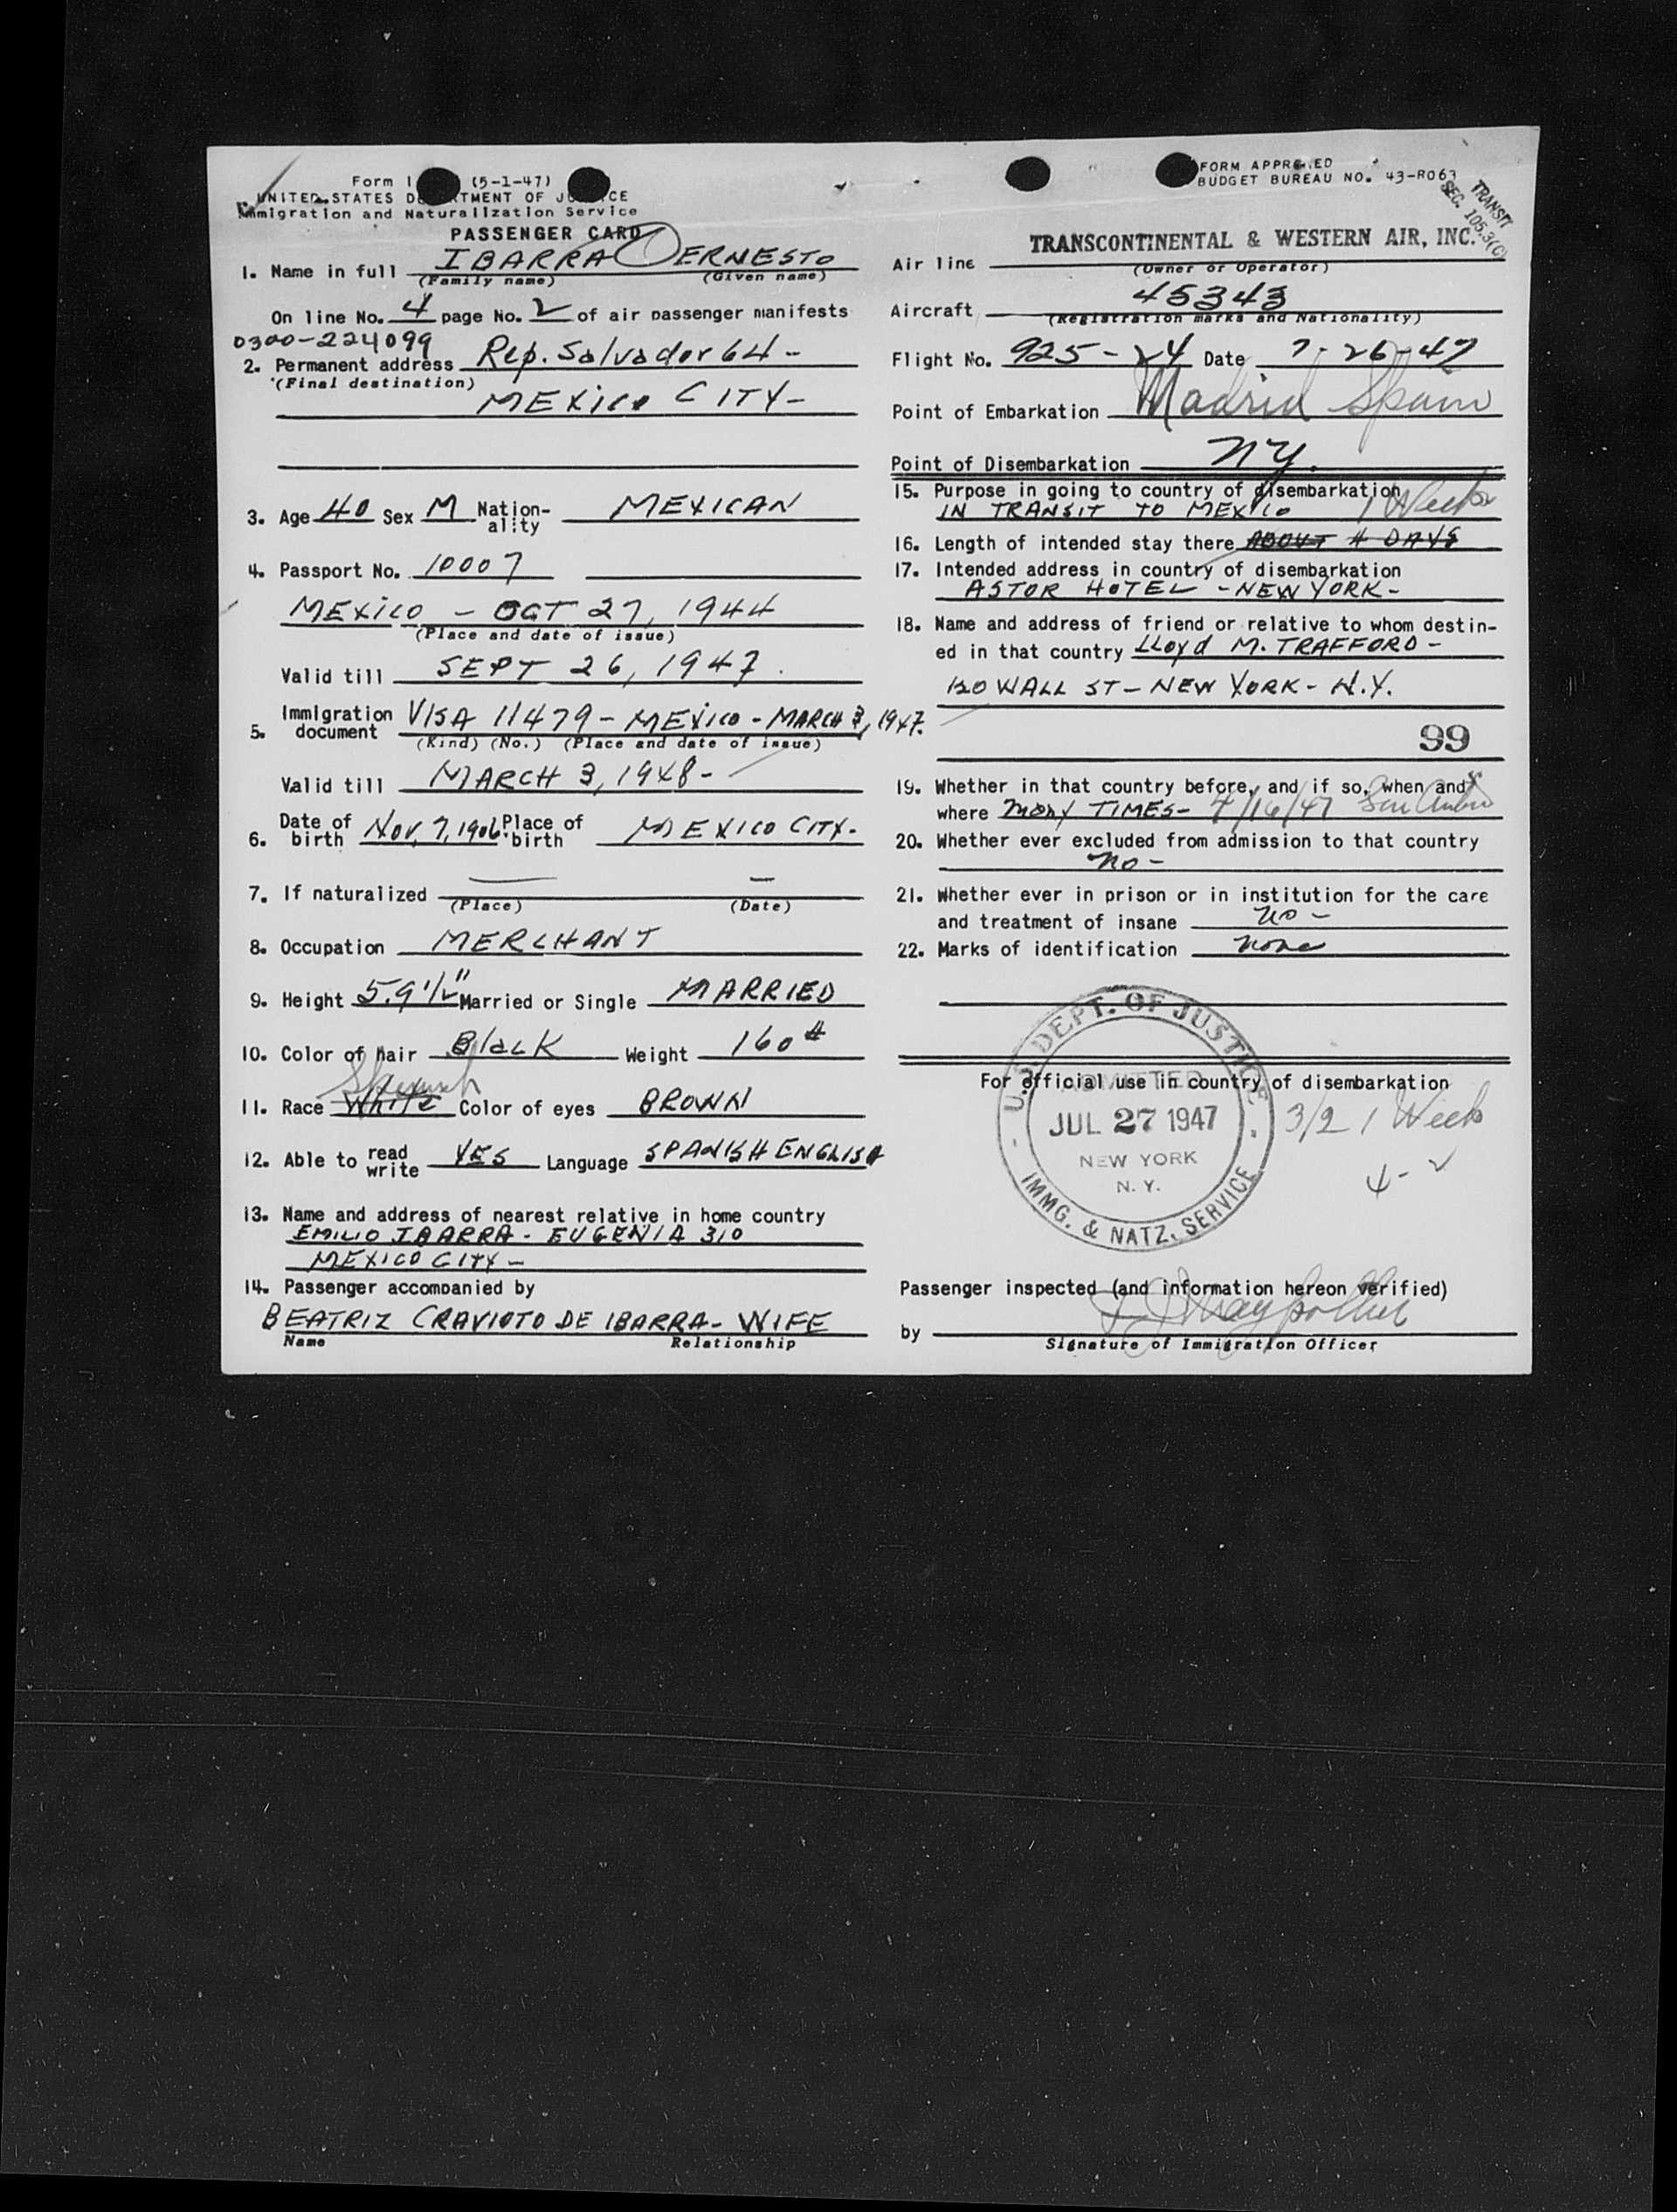 Form I (5-1-47)
UNITED STATES DEPARTMENT OF JUSTICE
Immigration and Naturalization Service
PASSENGER CARD
1. Name in full IBARRA ERNESTO
(Family name) (Given name)
On line No. 4 page No. 2 of air passenger manifests
0300-224099
2. Permanent address Rep. Salvador 64 -
(Final destination)
MEXICO CITY-
3. Age 40 Sex M Nation-ality MEXICAN
4. Passport No. 10007
MEXICO - OCT 27, 1944
(Place and date of issue)
Valid till SEPT 26, 1947.
5. Immigration document VISA 11479 - MEXICO - MARCH 3, 1947.
(Kind) (No.) (Place and date of issue)
Valid till MARCH 3, 1948-
6. Date of birth Nov. 7, 1906 Place of birth MEXICO CITY.
7. If naturalized — —
(Place) (Date)
8. Occupation MERCHANT
9. Height 5.9 1/2" Married or Single MARRIED
10. Color of hair Black Weight 160#
Spanish
11. Race White Color of eyes BROWN
12. Able to read write YES Language SPANISH ENGLISH
13. Name and address of nearest relative in home country
EMILIO IBARRA - EUGENIA 310
MEXICO CITY -
14. Passenger accompanied by
BEATRIZ CRAVIOTO DE IBARRA - WIFE
Name Relationship
FORM APPROVED
BUDGET BUREAU NO. 43-R063
TRANSIT
SEC. 105.3(C)
Air line TRANSCONTINENTAL & WESTERN AIR, INC.
(Owner or Operator)
Aircraft 45343
(Registration marks and Nationality)
Flight No. 925-24 Date 7-26-47
Point of Embarkation Madrid Spain
Point of Disembarkation NY.
15. Purpose in going to country of disembarkation
IN TRANSIT TO MEXICO 1 Week
16. Length of intended stay there ABOUT 4 DAYS
17. Intended address in country of disembarkation
ASTOR HOTEL - NEW YORK -
18. Name and address of friend or relative to whom destin-
ed in that country LLoyd M. TRAFFORD -
120 WALL ST - NEW YORK - N.Y.
99
19. Whether in that country before, and if so, when and
where many TIMES- 4/16/47 San
20. Whether ever excluded from admission to that country
no -
21. Whether ever in prison or in institution for the care
and treatment of insane no -
22. Marks of identification none
For official use in country of disembarkation
U.S. DEPT. OF JUSTICE
ADMITTED
JUL 27 1947
NEW YORK
N. Y.
IMMG. & NATZ. SERVICE
3/2 1 Week
4-2
Passenger inspected (and information hereon verified)
by
Signature of Immigration Officer